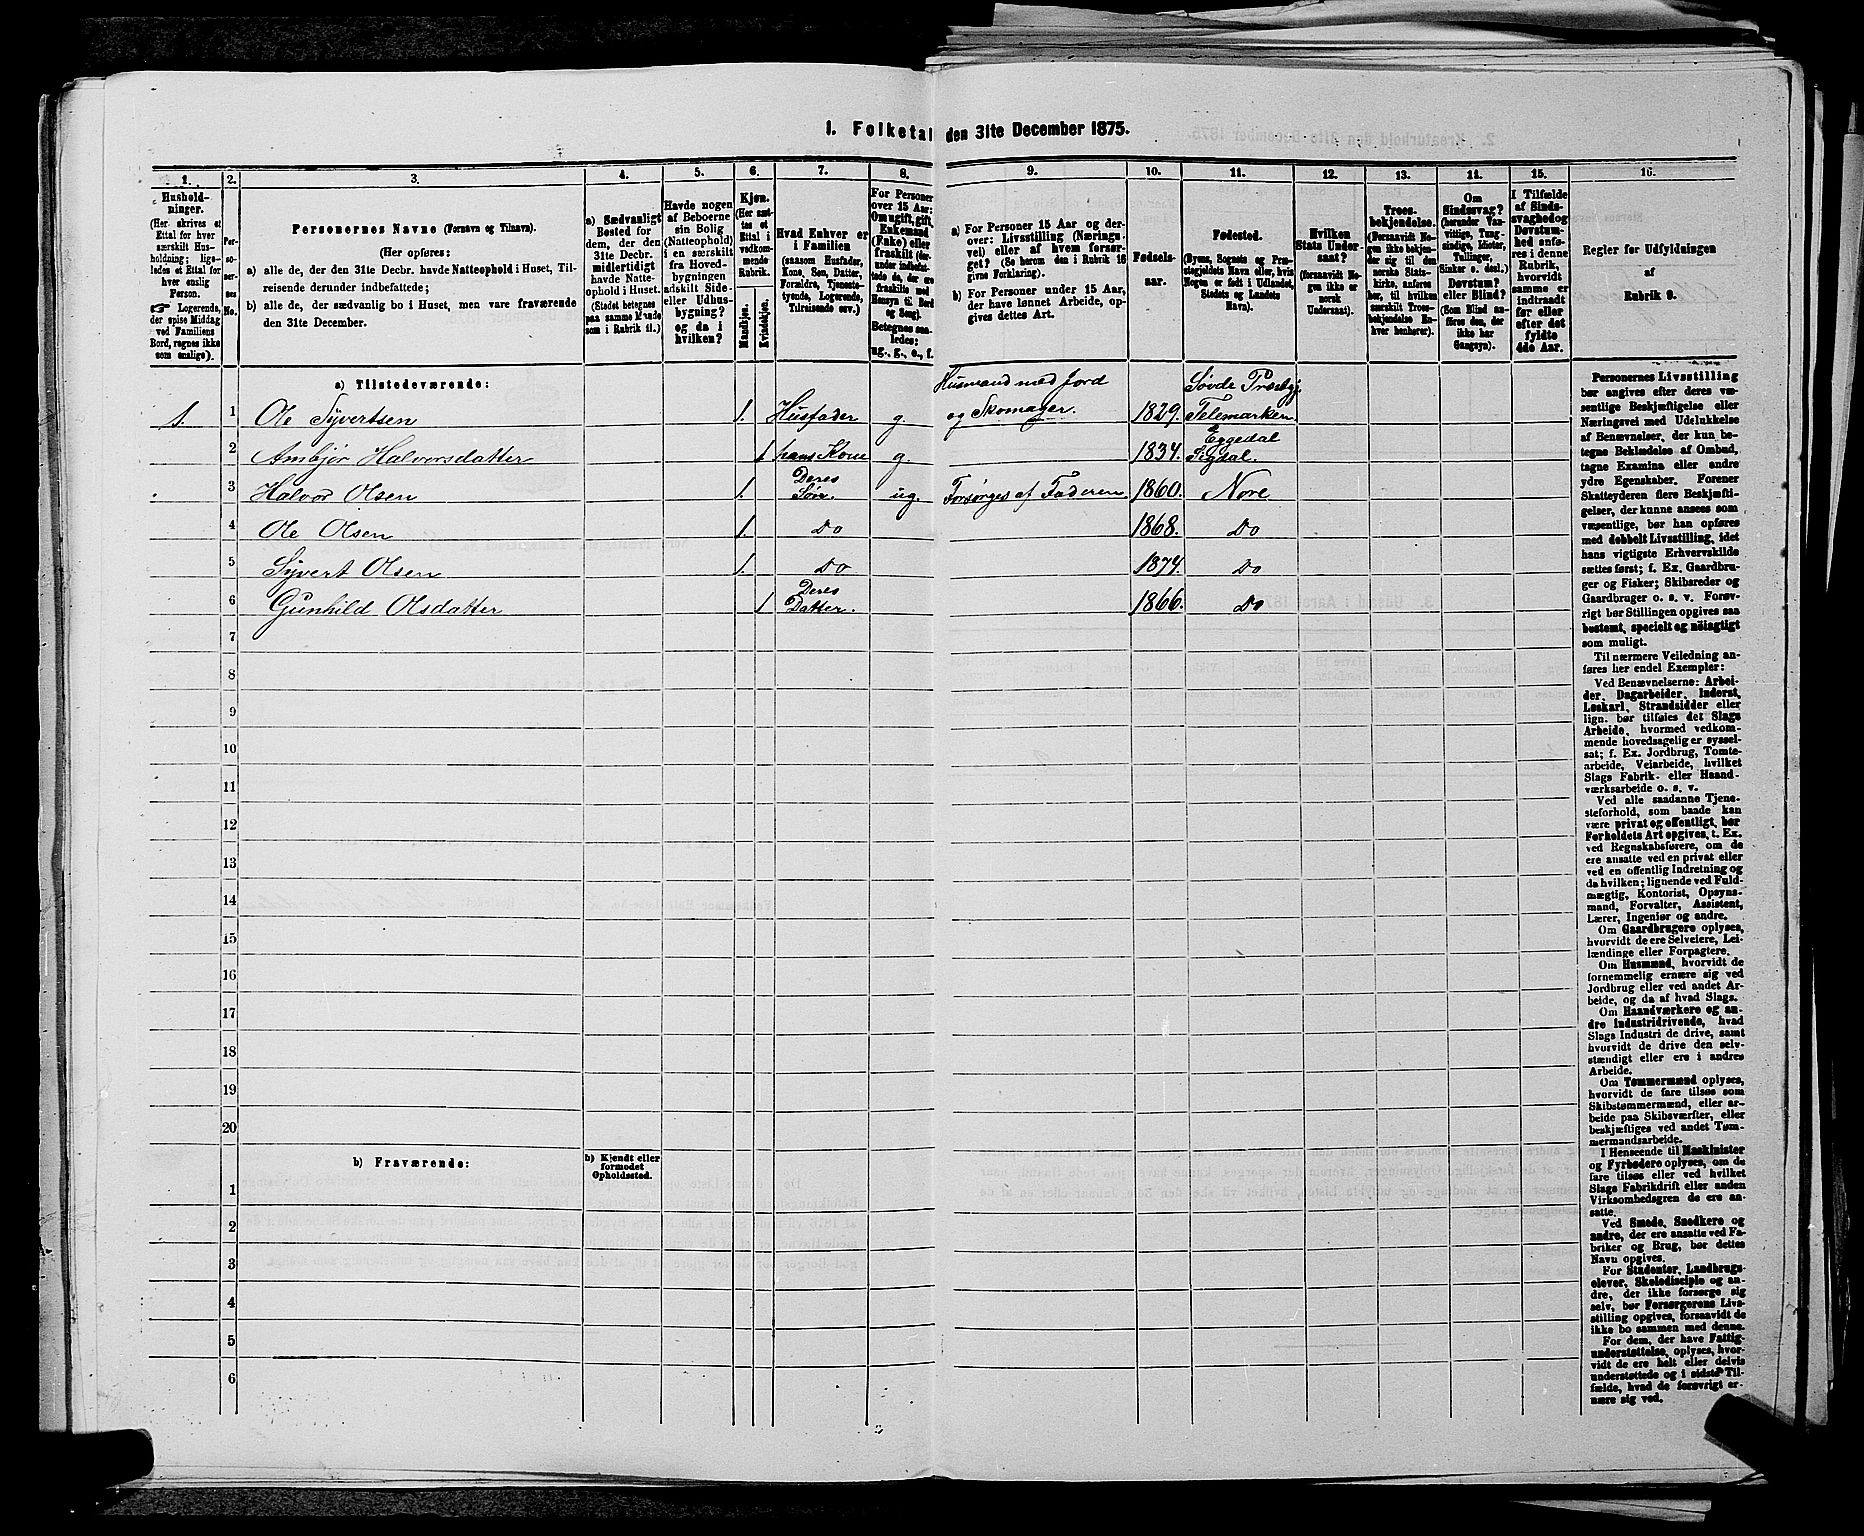 1. Folketal den 31te December 1875.
1. 2. 3. 4. 5. 6. 7. 8. 9. 10. 11. 12. 13. 14. 15. 16.
Husholdninger.
(Her skrives et
Ettal for hver
særskilt Hus-
holdning; lige-
ledes et Ettal for
hver enslig
Person.
Logerende,
der spise Middag
ved Familiens
Bord, regnes ikke
som enslige).
Per-
so-
ner-
nes
No.
Personernes Navne (Fornavn og Tilnavn).
(Her opføres:
a) alle de, der den 31te Decbr. havde Natteophold i Huset, Til-
reisende derunder indbefattede;
b) alle de, der sædvanlig bo i Huset, men vare fraværende
den 31te December.
a) Sædvanligt
Bosted for
dem, der den
31te Decbr.
midlertidigt
havde Natte-
ophold i Huset.
(Stedet betegnes
paa samme Maade
som i Rubrik 11.)
Havde nogen
af Beboerne
sin Bolig
(Natteophold)
i en særskilt
fra Hoved-
bygningen
adskilt Side-
eller Udhus-
bygning?
og da i
hvilken?
Kjøn.
(Her sæt-
tes et
Ettal i
vedkom-
mende
Rubrik.
Mandkjøn.
Kvindekjøn.
Hvad Enhver er
i Familien
(saasom Husfader,
Kone, Søn, Datter,
Forældre, Tjeneste-
tyende, Logerende,
Tilreisende osv.)
For Personer
over 15 Aar:
Om ugift, gift,
Enkemand
(Enke) eller
fraskilt (der-
under indbefat-
tede de, der ere
fraskilte med
Hensyn til Bord
og Seng).
Betegnes saa-
ledes:
ug., g., e., f.
a) For Personer 15 Aar og der-
over: Livsstilling (Nærings-
vei) eller af hvem forsør-
get? (Se herom den i Rubrik 16
givne Forklaring).
b) For Personer under 15 Aar,
der have lønnet Arbeide, op-
gives dettes Art.
Fødsels-
aar.
Fødested.
(Byens, Sognets og Præ-
stegjeldets Navn eller, hvis
Nogen er født i Udlandet,
Stedets og Landets
Navn).
Hvilken
Stats Under-
saat?
(forsaavidt No-
gen ikke er
norsk
Undersaat).
Troes-
bekjendelse.
(Forsaavidt No-
gen ikke bekjen-
der sig til den
norske Stats-
kirke, anføres
her, til hvilken
særskilt Troes-
bekjendelse En-
hver henhører).
Om
Sindssvag?
(herunder Van-
vittige, Tung-
sindige, Idioter,
Tullinger,
Sinker o. desl.)
Døvstum?
eller Blind?
(Som Blind an-
føres den, der
ikke har
Gangsyn).
I Tilfælde
af Sinds-
svaghed og
Døvstum-
hed anfø-
res i denne
Rubrik,
hvorvidt
samme er
indtraadt
før eller
efter det
fyldte
4de Aar.
Regler for Udfyldningen
af
Rubrik 9.
a) Tilstedeværende:
1. 1 Ole Syvertsen 1. Husfader g. Husmand med Jord og Skomager. 1829. Søvde Præstgj. Telemarken
2 Ambjør Halvorsdatter 1 hans Kone g. 1834. Eggedal Sigdal.
3 Halvor Olsen 1. Deres Søn. ug. Forsørges af Faderen 1860. Nore
4 Ole Olsen 1. Do 1868. Do
5 Syvert Olsen 1. Do 1874. Do
6 Gunhild Olsdatter 1 Deres Datter. 1866. Do
7
8
9
10
11
12
13
14
15
16
17
18
19
20
b) Fraværende:
b) Kjendt eller
formodet
Opholdssted.
1
2
3
4
5
6
Personernes Livsstilling
bør angives efter deres væ-
sentlige Beskjæftigelse eller
Næringsvei med Udelukkelse
af Benævnelser, der kun be-
tegne Beklædelse af Ombud,
tagne Examina eller andre
ydre Egenskaber. Forener
Skatteyderen flere Beskjæfti-
gelser, der kunne ansees som
væsentlige, bør han opføres
med dobbelt Livsstilling, idet
hans vigtigste Erhvervskilde
sættes først; f. Ex. Gaardbru-
ger og Fisker; Skibsreder og
Gaardbruger o. s. v. Forøv-
rigt bør Stillingen opgives saa
bestemt, specielt og nöiagtigt
som muligt.
Til nærmere Veiledning an-
føres her endel Exempler:
Ved Benævnelserne: Arbei-
der, Dagarbeider, Inderst,
Løskarl, Strandsidder eller
lign. bør tilføies det Slags
Arbeide, hvormed vedkom-
mende hovedsagelig er syssel-
sat; f. Ex. Jordbrug, Tomte-
arbeide, Veiarbeide, hvilket
Slags Fabrik- eller Haand-
værksarbeide o. s. v.
Ved alle saadanne Tjene-
steforhold, som baade kan
være privat og offentligt, bør
Forholdets Art opgives, t. Ex.
ved Regnskabsførere, om de
ere ansatte ved en privat eller
ved en offentlig Indretning og
da hvilken; lignende ved Fuld-
mægtig, Kontorist, Opsyns-
mand, Forvalter, Assistent,
Lærer, Ingeniør og andre.
Om Gaardbrugere oplyses,
hvorvidt de ere Selveiere, Lei-
lændinge eller Forpagtere.
Om Husmænd, hvorvidt de
fornemmelig ernære sig ved
Jordbrug eller ved andet Ar-
beide, og da af hvad Slags.
Om Haandværkere og an-
dre Industridrivende, hvad
Slags Industri de drive, samt
hvorvidt de drive den selv-
stændigt eller ere i andres
Arbeide.
Om Tømmermænd oplyses,
hvorvidt de fare tilsøs som
Skibstømmermænd, eller ar-
beide paa Skibsværfter, eller
beskjæftiges ved andet Tøm-
mermandsarbeide.
I Henseende til Maskinister
og Fyrbødere oplyses, om de
fare tilsøs eller ved hvilket
Slags Fabrikdrift eller anden
Virksomhedsgren de ere an-
satte.
Ved Smede, Snedkere og
andre, der ere ansatte ved Fa-
briker og Brug, bør dettes
Navn opgives.
For Studenter, Landbrugs-
elever, Skoledisciple og an-
dre, der ikke forsørge sig
selv, bør Forsørgerens Livs-
stilling opgives, forsaavidt de
ikke bo sammen med denne.
For dem, der have Fattig-
understøttelse, oplyses, hvor-
vidt de ere helt eller delvis
understøttede og i sidste Til-
fælde, hvad de forøvrigt er-
nære sig ved.